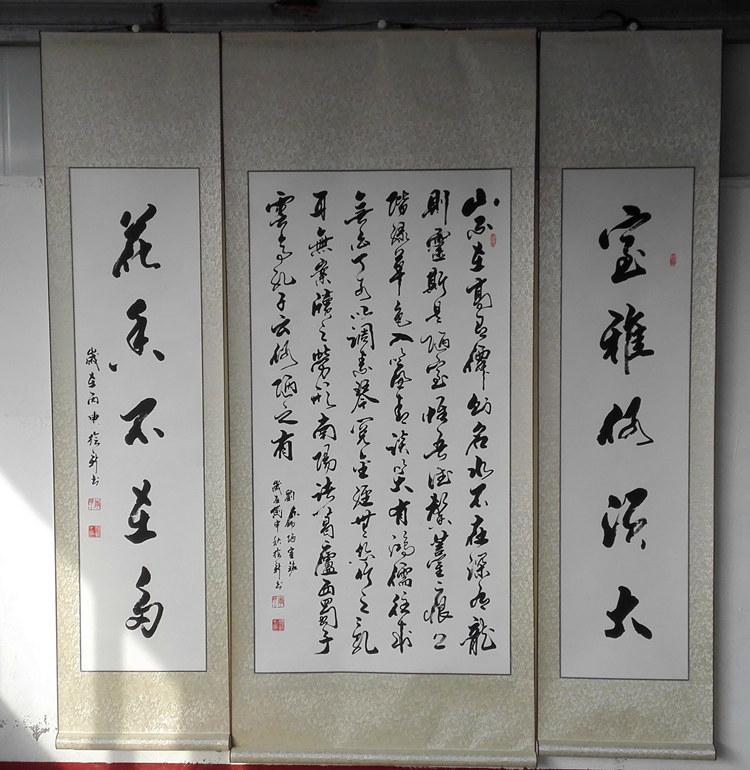 室雅何須大
山不在高有僊則名水不在深有龍
則靈斯是陋室惟吾德馨苔痕上
階綠草色入簾青談笑有鴻儒往來
無白丁可以調素琴閱金經無絲竹之亂
耳無案牘之勞形南陽諸葛廬西蜀子
雲亭孔子云何陋之有
劉禹錫陋室銘
歲在丙申秋
花香不在多
歲在丙申